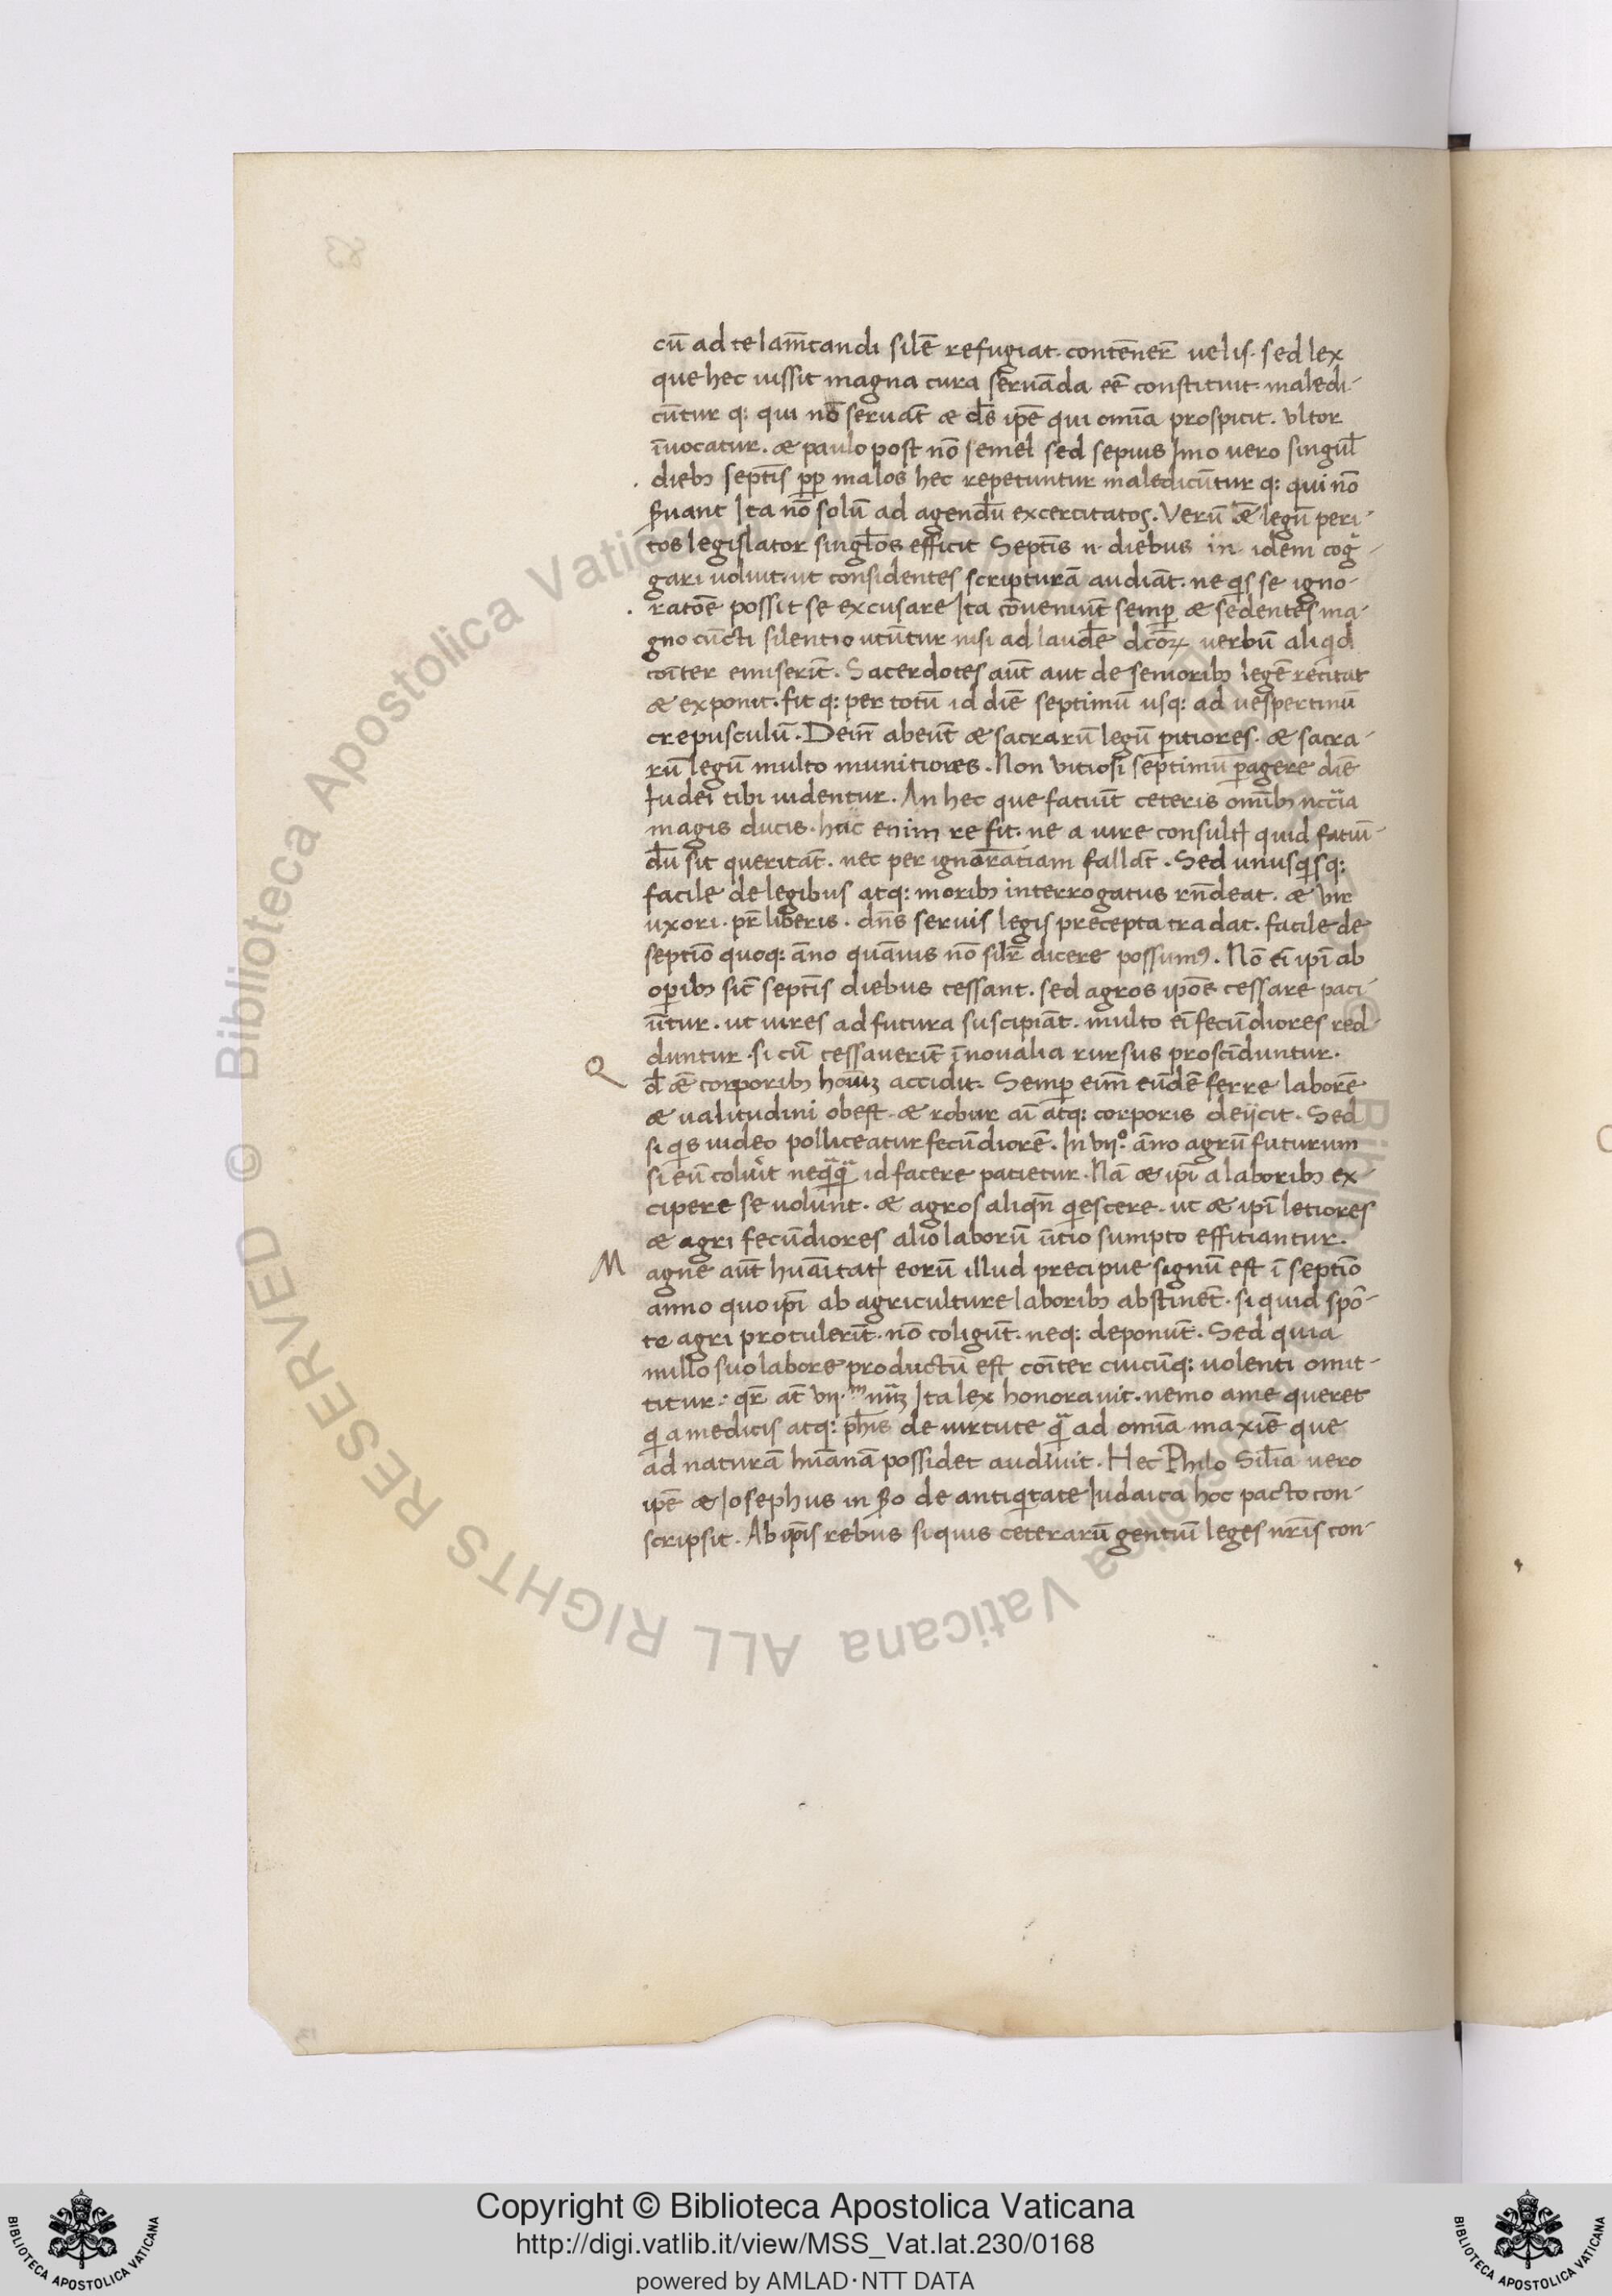 cū ad te lam̄tandi silē refugiat. contēner̄ uelis. sed lex
que hec iussit magna cura seruāda eē constituit. maledi-
cūtur q: qui nō seruāt æ d̄s ip̄e qui om̄ia prospicit. Vltor
īuocatur. æ paulo post nō semel sed sepius Imo uero singul̄
dieb; sept̄is malos hec repetuntur maledicūtur q: qui nō
ẞuant Ita nō solū ad agendū excercitatos. Verū æ legū peri-
tos legislator singl̄os efficit Sept̄is n. diebus in idem cog̃-
gari uoluit. ut considentes scripturā audiāt. ne q̇s se igno-
ratōe possit se excusare Ita cōueniūt semp̲ æ sedentes ma-
gno cūcti silentio utūtur nisi ad laudē dc̄oꝝ uerbū aliq̇d
cōiter emiserīt. Sacerdotes aūt aut de seniorib; legē recitat
æ exponit. fit q: per totū id diē septimū usq: ad uespertinū
crepusculū. Dein̄ abeūt æ sacrarū legū p̲itiores. æ sacra-
rū legū multo munitiores. Non vitiosi septimū p̲agere diē
Iudei tibi uidentur. An hec que fatiūt ceteris om̄ib; nccīa
magis ducis. hac enim re fit. ne a iure consultꝭ quid fatiū-
dū sit queritāt. nec per ignorātiam fallāt. Sed unusq̇sq:
facile de legibus atq: morib; interrogatus rn̄deat. æ vir
uxori. pr̄ liberis. dn̄s seruis legis precepta tradat. facile de
septīo quoq: āno quāuis nō silr̄ dicere possumꝰ. Nō eī ip̄i ab
op̲ib; sic̄ sept̄is diebus cessant. sed agros ip̄os cessare paci-
ūtur. ut uires ad futura suscipiāt. multo eī fecūdiores red-
duntur. si cū cessauerīt ī noualia rursus proscīduntur.
Q d̄ æ corporib; hoīuꝫ accidit. Semp̲ eim̄ eūdē ferre laborē
æ ualitudini obest æ robur aī atq: corporis deijcit. Sed
si q̇s uideo polliceatur fecūdiorē. In vij.º āno agrū futurum
si eū coluit neq̃q̃ id facere patietur. Nā æ ip̄i a laborib; ex-
cipere se uolunt. æ agros aliqn̄ q̇escere. ut æ ip̄i letiores
æ agri fecūdiores alio laborū īitio sumpto effitiantur.
M agne aūt huāitatꝭ eorū illud precipue signū est ī septīo
anno quo ip̄i ab agriculture laborib; abstinēt. si quid spō-
te agri protulerīt. nō coligūt. neq: deponūt. Sed quia
nullo suo labore productū est cōiter cuicūq: uolenti omit-
titur: qr̄ at̄ vij.ᵐ nūꝫ Ita lex honorauit. nemo a me queret
q̇ a medicis atq: ph̄is de uirtute q̃ ad om̄ia maxīe que
ad naturā humanā possidet audiuit. Hec Philo Sil̄ia uero
ip̄e æ Iosephus in ẞo de antiq̇tate Iudaica hoc pacto con-
scripsit. Ab ip̄is rebus si quis ceterarū gentiū leges nr̄is con-
Copyright © Biblioteca Apostolica Vaticana
http://digi.vatlib.it/view/MSS_Vat.lat.230/0168
powered by AMLAD·NTT DATA
BIBLIOTECA APOSTOLICA VATICANA
BIBLIOTECA APOSTOLICA VATICANA
© Biblioteca Apostolica Vaticana ALL RIGHTS RESERVED